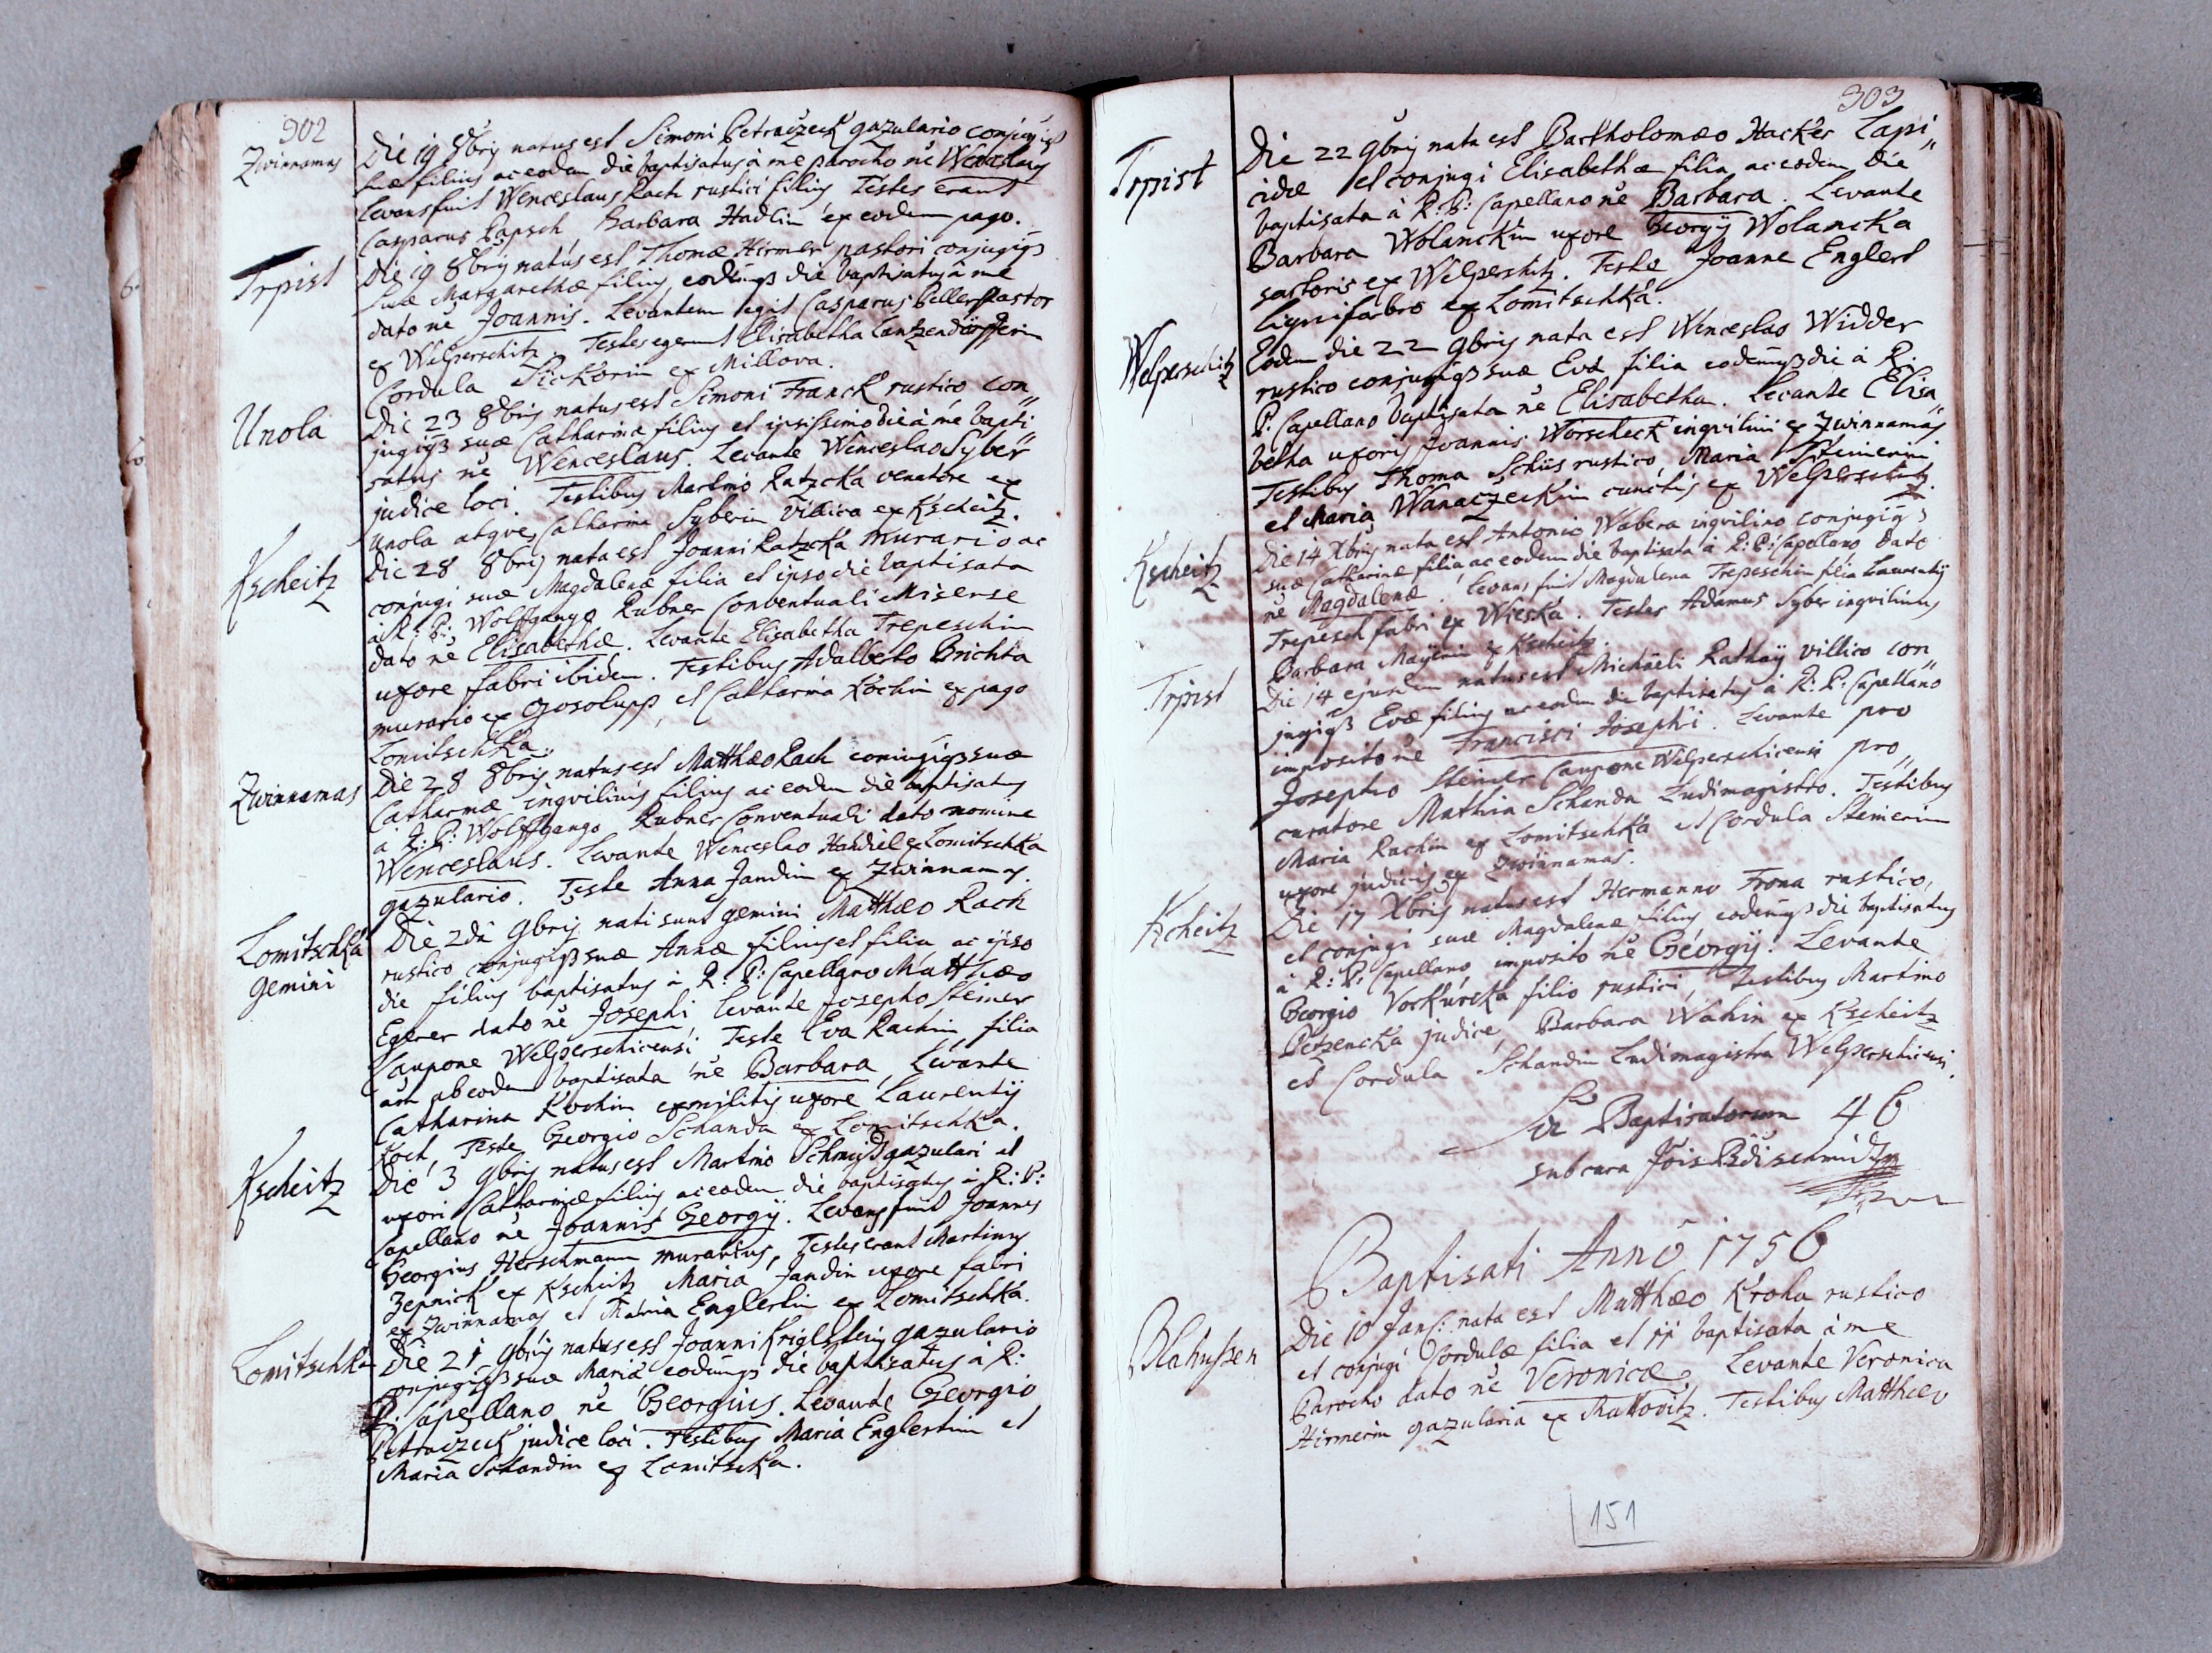 302
Zwinnamas
Die 19 8bris natus est Simoni Petraczeck gazulario conjugiqß
suæ filius ac eodem die baptisatus à me parocho ne Wenceslaus
Levans fuit Wenceslaus Rach rustici filius Testes erant
Casparus Papsch Barbara Hadlin ex eodem pago.
Trpist
Die 19 8bris natus est Thomæ Hirmer pastori conjugiqß
suæ Margarethæ filius, eodemqß die baptisatus à me
dato ne Joannis. Levantem egit Casparus Peller Pastor
ex Welperschitz Testes egerunt Elisabetha Lantzendörfferin
Cordula Sickorin ex Millova.
Unola
Die 23 8bris natus est Simoni Franck rustico con„
jugiqß suæ Catharinæ filius et ipsissimo die à me bapti„
satus ne Wenceslaus. Levante Wenceslao Syber
judice loci. Testibus Martino Ratzcka venatore ex
Unola atqve Catharina Syberin Villica ex Kscheitz.
Kscheitz
Die 28 8bris nata est Joanni Ratzcka murario ac
conjugi suæ Magdalenæ filia et ipso die baptisata
à R: P: Wolffgango Rubner Conventuali Miserse
dato ne Elisabethæ. Levante Elisabetha Trepeschin
uxore fabri ibidem. Testibus Adalberto Brichta
murario ex Gosolupß, et Catharina Kochin ex pago
Lomitschka.
Zwinnamas
Die 28 8bris natus est Matthæo Rach conjugiqß suæ
Catharinæ inqvilinus filius ac eodem die baptisatus
à R: P: Wolffgango Rubner Conventuali dato nomine
Wenceslaus. Levante Wenceslao Handel ex Lomitschka
gazulario. Teste Anna Jandin ex Zwinnamas.
Lomitschka
gemini
Die 2da 9bris nati sunt gemini Matthæo Rach
rustico conjugiqß suæ Annæ filius et filia ac ipso
die filius baptisatus à R: P: Capellano Matthæo
Egerer dato ne Josephi levante Josepho Steiner
Caupone Welperschicensi Teste Eva Rachin filia
ab eodem baptisata ne Barbara, Levante
Catharina Kochin exmilitis uxore Laurentij
Koch, Teste Georgio Schanda ex Lomitschka.
Kscheitz
Die 3 9bris natus est Martino Schmidt gazulari et
uxori Catharinæ filius ac eodem die baptisatus à R: P:
Capellano ne Joannis Georgij. Levans fuit Joannes
Georgius Herschmann murarius, Testes erant Martinus
Zepnick ex Kscheitz Maria Jandin uxore fabri
ex Zwinnamas et Maria Englertin ex Lomitschka.
Lomitschka
Die 21 9bris natus est Joanni Kriglstein gazulario
conjugiqß suæ Maria eodemqß die baptisatus à R:
P: Capellano ne Georgius. Levante Georgio
Petraczeck judice loci. Testibus Maria Englertin et
Maria Schandin ex Lomitschka.
303
Trpist
Die 22 9bris nata est Bartholomæo Hacker Lapi„
cidæ et conjugi Elisabethæ filia ac eodem die
baptisata à R: P: Capellano ne Barbara. Levante
Barbara Wolanckin uxore Georgij Wolancka
sartoris ex Welperschitz. Teste Joanne Englert
lignifabro ex Lomitschka.
Welperschitz
Eodem die 22 9bris nata est Wenceslao Widder
rustico conjugiqß suæ Evæ filia eodemqß die à R:
P: Capellano baptisata ne Elisabetha. Levante Elisa„
betha uxoris Joannis Worscheck inqvilini ex Zwinnamas
Testibus Thoma Schüs rustico, Maria Steinerin
et Maria Wanaczeckin cunctis ex Welperschitz.
Kscheitz
Die 14 Xbris nata est Antonio Wabera inqvilino conjugiqß
suæ Catharinæ filia ac eodem die baptisata à R: P: Capellano dato
ne Magdalenæ. Levans fuit Magdalena Trepeschin filia Laurentij
Trepesch fabri ex Wieska. Testes Adamus Syber inqvilinus
Barbara Mayerin ex Kscheitz.
Trpist
Die 14 ejusdem natus est Michäeli Rathaÿ villico con„
jugiqß Evæ filius ac eodem die baptisatus à R: P: Capellano
imposito ne Francisci Josephi. Levante pro
Josepho Steiner Caupone Welperschicensi pro„
curatore Mathia Schanda Ludimagistro. Testibus
Maria Rachin ex Lomitschka et Cordula Steinerin
uxore judicis ex Zwinnamas.
Kscheitz
Die 17 Xbris natus est Hermanno Frona rustico,
et conjugi suæ Magdalenæ filius eodemqß die baptisatus
à R: P: Capellano imposito ne Georgij. Levante
Georgio Vorkurcka filio rustici, testibus Martino
Petzencka judice, Barbara Wahin ex Kscheitz
et Cordula Schandin Ludimagistra Welperschicensi.
Baptisatorum 46
sub cura
Baptisati Anno 1756
Blahussen
Die 10 Jan: nata est Matthæo Kroha rustico
et conjugi Cordulæ filia et 11 baptisata à me
Parocho dato ne Veronicæ. Levante Veronica
Hirmerin gazularia ex Mallovitz. Testibus Matthæo
151